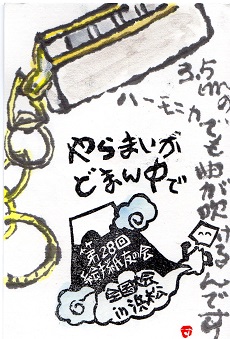 3.5cmの
ハーモニカでも曲が吹けるんです
やらまいが
どまん中で
第28回
絵手紙友の会
全国大会
in 浜松